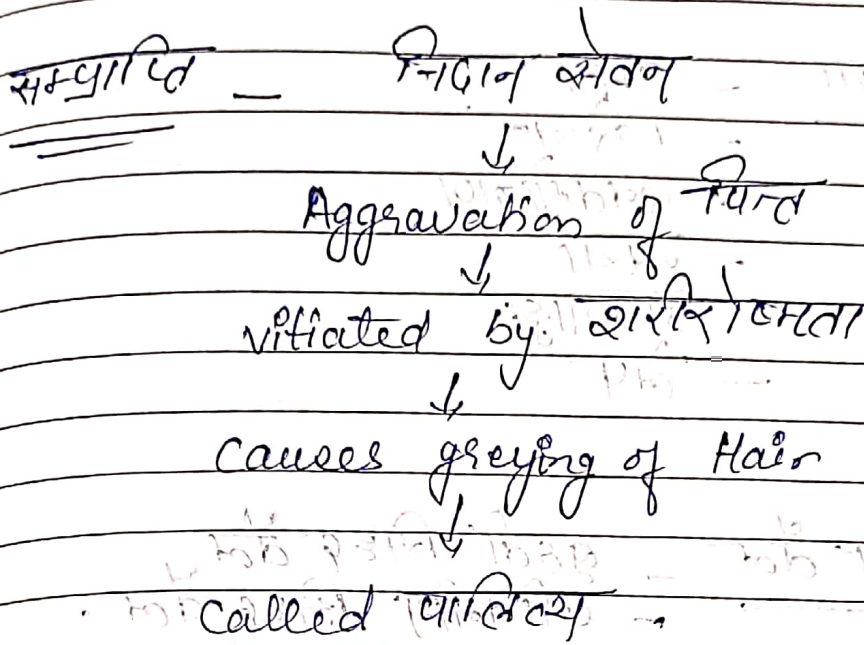 सम्प्राप्ति – निदान सेवन
↓
Aggravation of पित्त
↓
vitiated by शरीरोष्मता
↓
causes greying of Hair
↓
called पालित्य